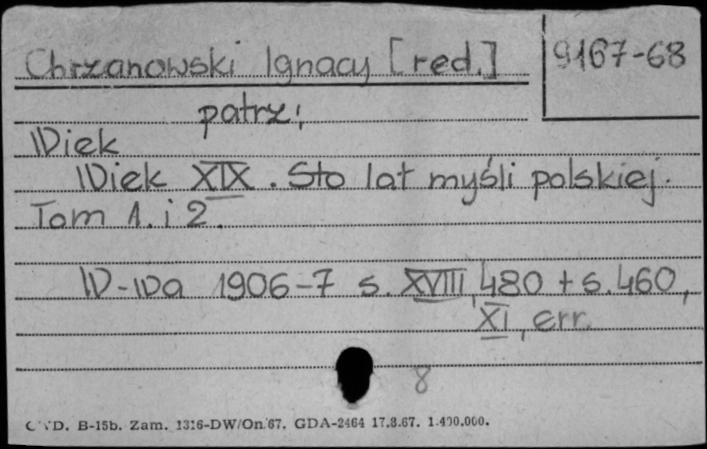 Chrzanowski Ignacy [red.]
9167-68
patrz:
Wiek
Wiek XIX. Sto lat myśli polskiej.
Tom 1. i 2.
W-wa 1906-7 s. XVIII, 480 + s. 460,
XI, err.
8
B-15b. Zam. 1316-DW/On/67. GDA-2464 17.8.67. 1.400.000.